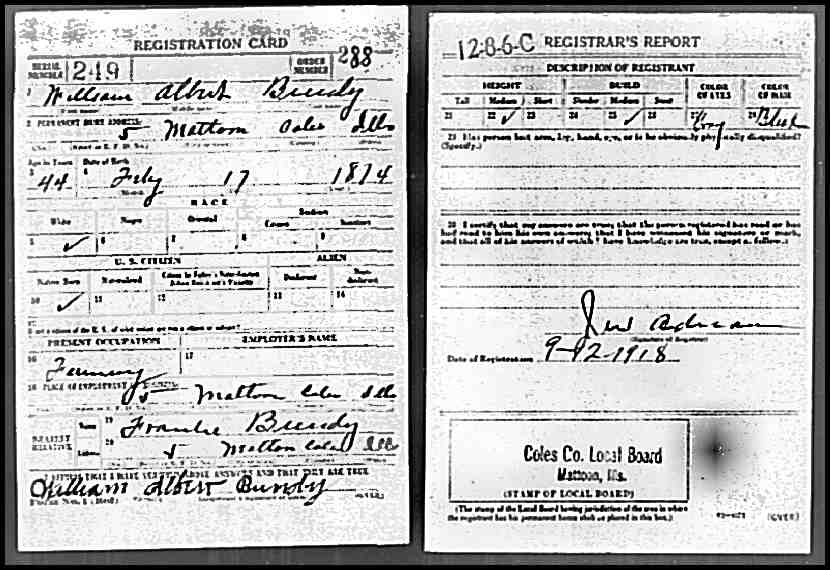 REGISTRATION CARD
SERIAL NUMBER 249 ORDER NUMBER 288
1 William Albert Bundy
2 PERMANENT HOME ADDRESS:
5 Mattoon Coles Ills
Age in Years Date of Birth
3 44 4 Feby 17 1874
RACE
White Negro Oriental Indian
Citizen
5 ✓ 6 7 8 9
U. S. CITIZEN ALIEN
Native Born Naturalized Citizen by Father's Naturalization Before Registrant's Majority Declarant Non-declarant
10 ✓ 11 12 13 14
15
If not a citizen of the U. S. of what nation are you a citizen or subject?
PRESENT OCCUPATION EMPLOYER'S NAME
16 Farming 17
18 PLACE OF EMPLOYMENT
5 Mattoon Coles Ills
NEAREST RELATIVE
Name 19
Bundy
Address 20 5 Mattoon Coles Ills
I AFFIRM THAT I HAVE VERIFIED ABOVE ANSWERS AND THAT THEY ARE TRUE
William Albert Bundy
12-8-6-C REGISTRAR'S REPORT
DESCRIPTION OF REGISTRANT
HEIGHT BUILD COLOR OF EYES COLOR OF HAIR
Tall Medium Short Slender Medium Stout
21 22 ✓ 23 24 25 ✓ 26 27 Gray 28 Black
29 Has person lost arm, leg, hand, eye, or is he obviously physically disqualified?
(Specify.)
30 I certify that my answers are true; that the person registered has read or has
had read to him his own answers; that I have witnessed his signature or mark,
and that all of his answers of which I have knowledge are true, except as follows:
(Signature of Registrar)
Date of Registration 9-12-1918
Coles Co. Local Board
Mattoon, Ills.
(STAMP OF LOCAL BOARD)
(The stamp of the Local Board having jurisdiction of the area in which
the registrant has his permanent home shall be placed in this box.)
(OVER)